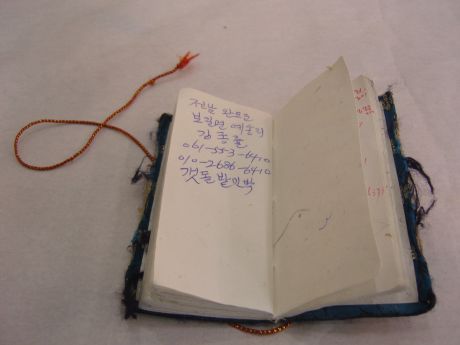 전남 완도군
보길면 예송리
061-553-6410
010-2686-6410
갯돌밭민박